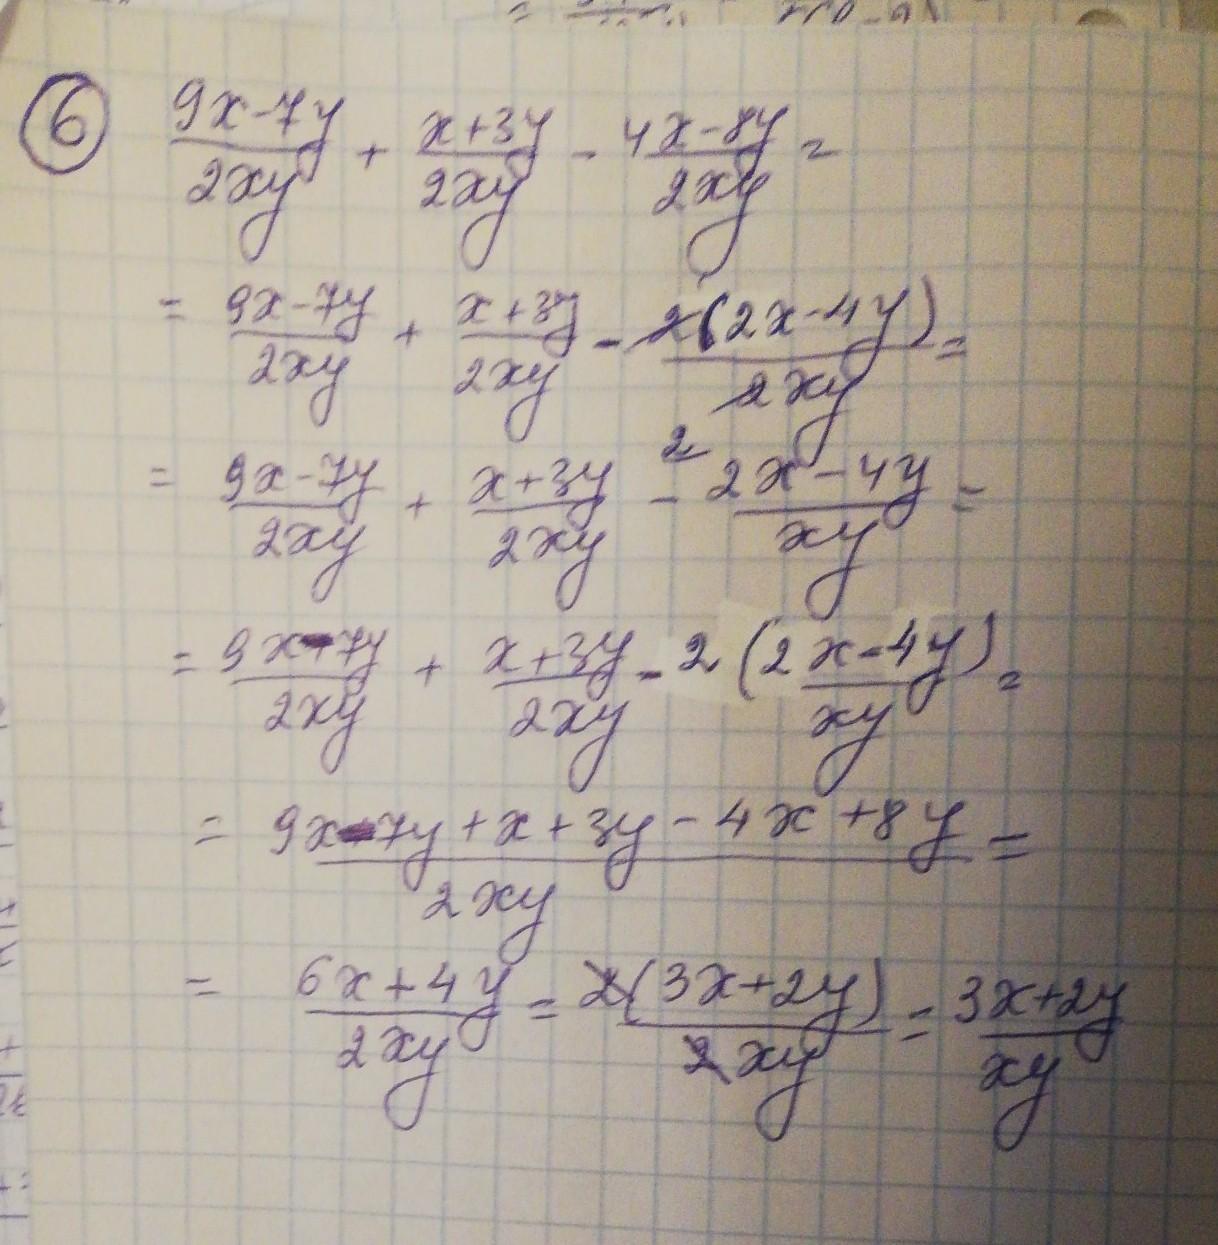 6 (9x-7y)/(2xy) + (x+3y)/(2xy) - (4x-8y)/(2xy) =
= (9x-7y)/(2xy) + (x+3y)/(2xy) - 2(2x-4y)/(2xy) =
= (9x-7y)/(2xy) + (x+3y)/(2xy) - 2 (2x-4y)/(xy) =
= (9x-7y)/(2xy) + (x+3y)/(2xy) - 2 (2x-4y)/(xy) =
= (9x-7y+x+3y-4x+8y)/(2xy) =
= (6x+4y)/(2xy) = 2(3x+2y)/(2xy) = (3x+2y)/(xy)